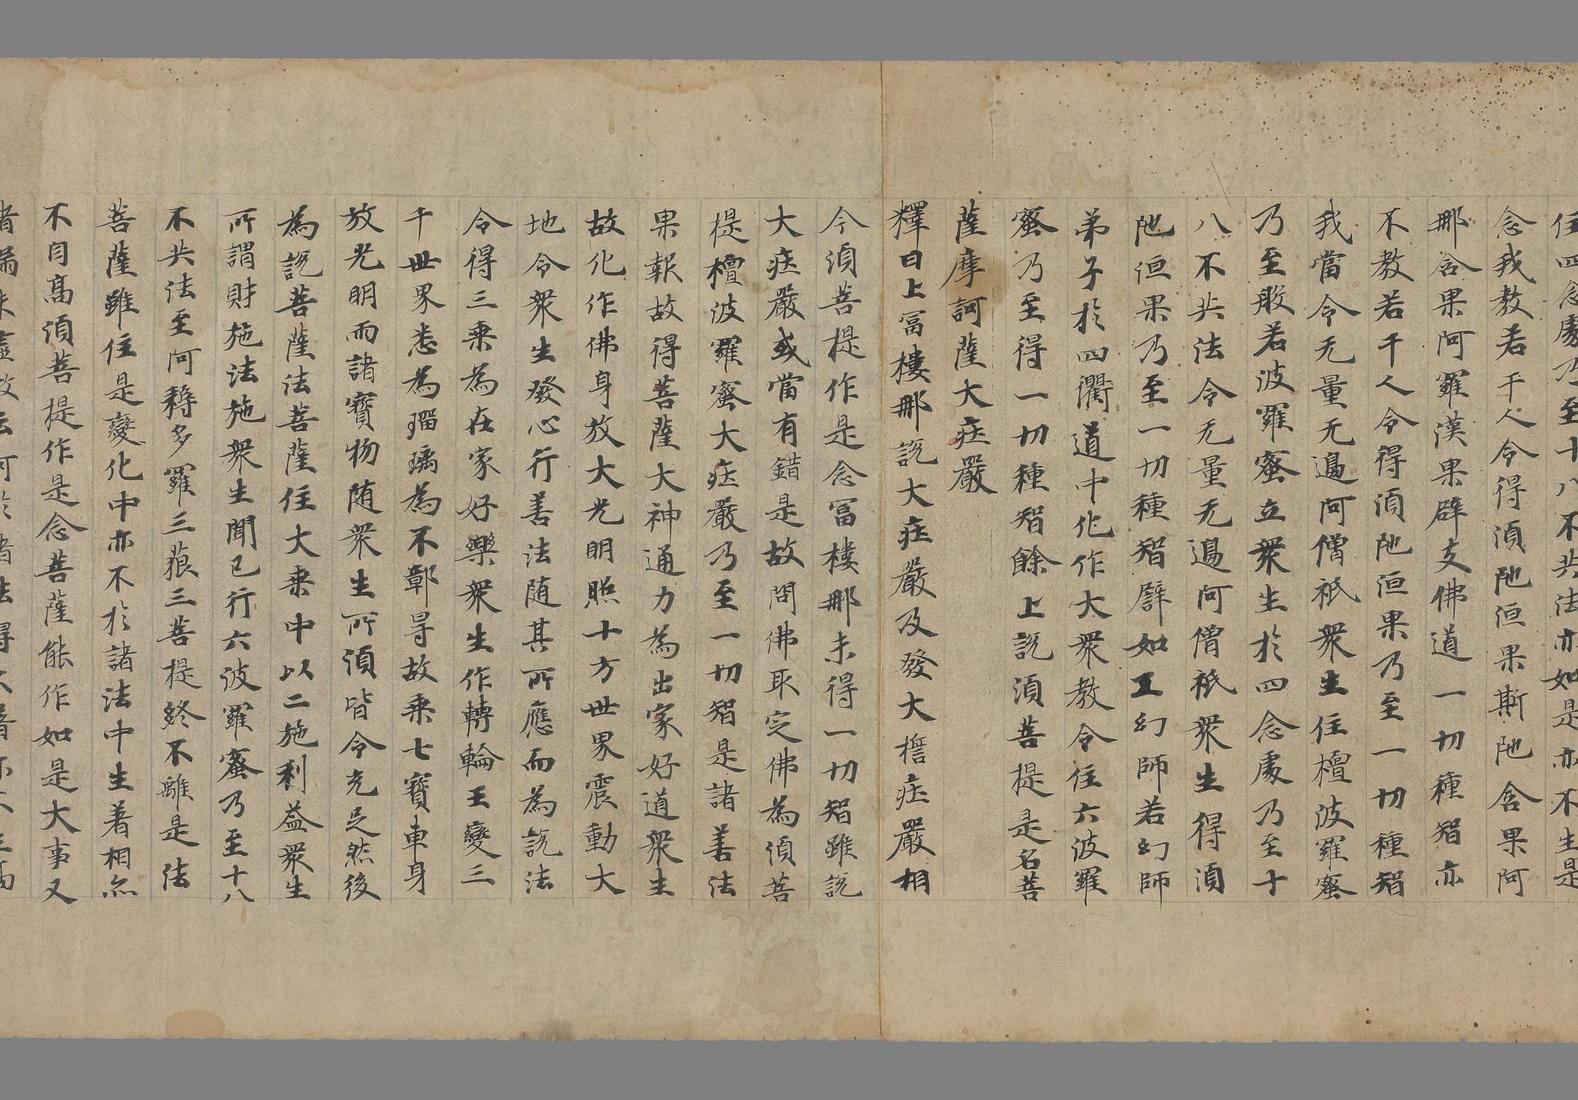 住四念處乃至十八不共法亦如是亦不生是
念我教若干人令得須陁洹果斯陁含果阿
那含果阿羅漢果辟支佛道一切種智亦
不教若干人令得須陁洹果乃至一切種智
我當令无量无邊阿僧祇衆生住檀波羅蜜
乃至般若波羅蜜立衆生於四念處乃至十
八不共法令无量无邊阿僧祇衆生得須
陁洹果乃至一切種智譬如工幻師若幻師
弟子於四衢道中化作大衆教令住六波羅
蜜乃至得一切種智餘上說須菩提是名菩
薩摩訶薩大庄嚴
釋曰上冨樓那說大庄嚴及發大檐庄嚴相
今須菩提作是念冨樓那未得一切智雖說
大庄嚴或當有錯是故問佛取定佛為須菩
提檀波羅蜜大庄嚴乃至一切智是諸善法
果報故得菩薩大神通力為出家好道衆生
故化作佛身放大光明照十方世界震動大
地令衆生發心行善法随其所應而為說法
令得三乗為在家好樂衆生作轉輪王變三
千世界悉為瑠璃為不鄣㝵故乗七寶車身
放光明雨諸寶物随衆生所須皆令充足然後
為說菩薩法菩薩住大乗中以二施利益衆生
所謂財施法施衆生聞已行六波羅蜜乃至十八
不共法至阿耨多羅三藐三菩提終不離是法
菩薩雖住是變化中亦不於諸法中生著相亦
不自髙須菩提作是念菩薩能作如是大事又